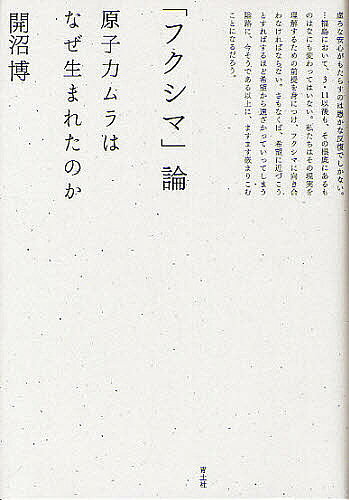 虚ろな安心がもたらすのは愚かな反復でしかない。
…福島において、3・11以後も、その根底にあるも
のはなにも変わってはいない。私たちはその現実を
理解するための前提を身につけ、フクシマに向き合
わなければならない。さもなくば、希望に近づこう
とすればするほど希望から遠ざかっていってしまう
隘路に、今そうである以上に、ますます嵌まりこむ
ことになるだろう。
「フクシマ」論
原子力ムラは
なぜ生まれたのか
開沼博
青土社